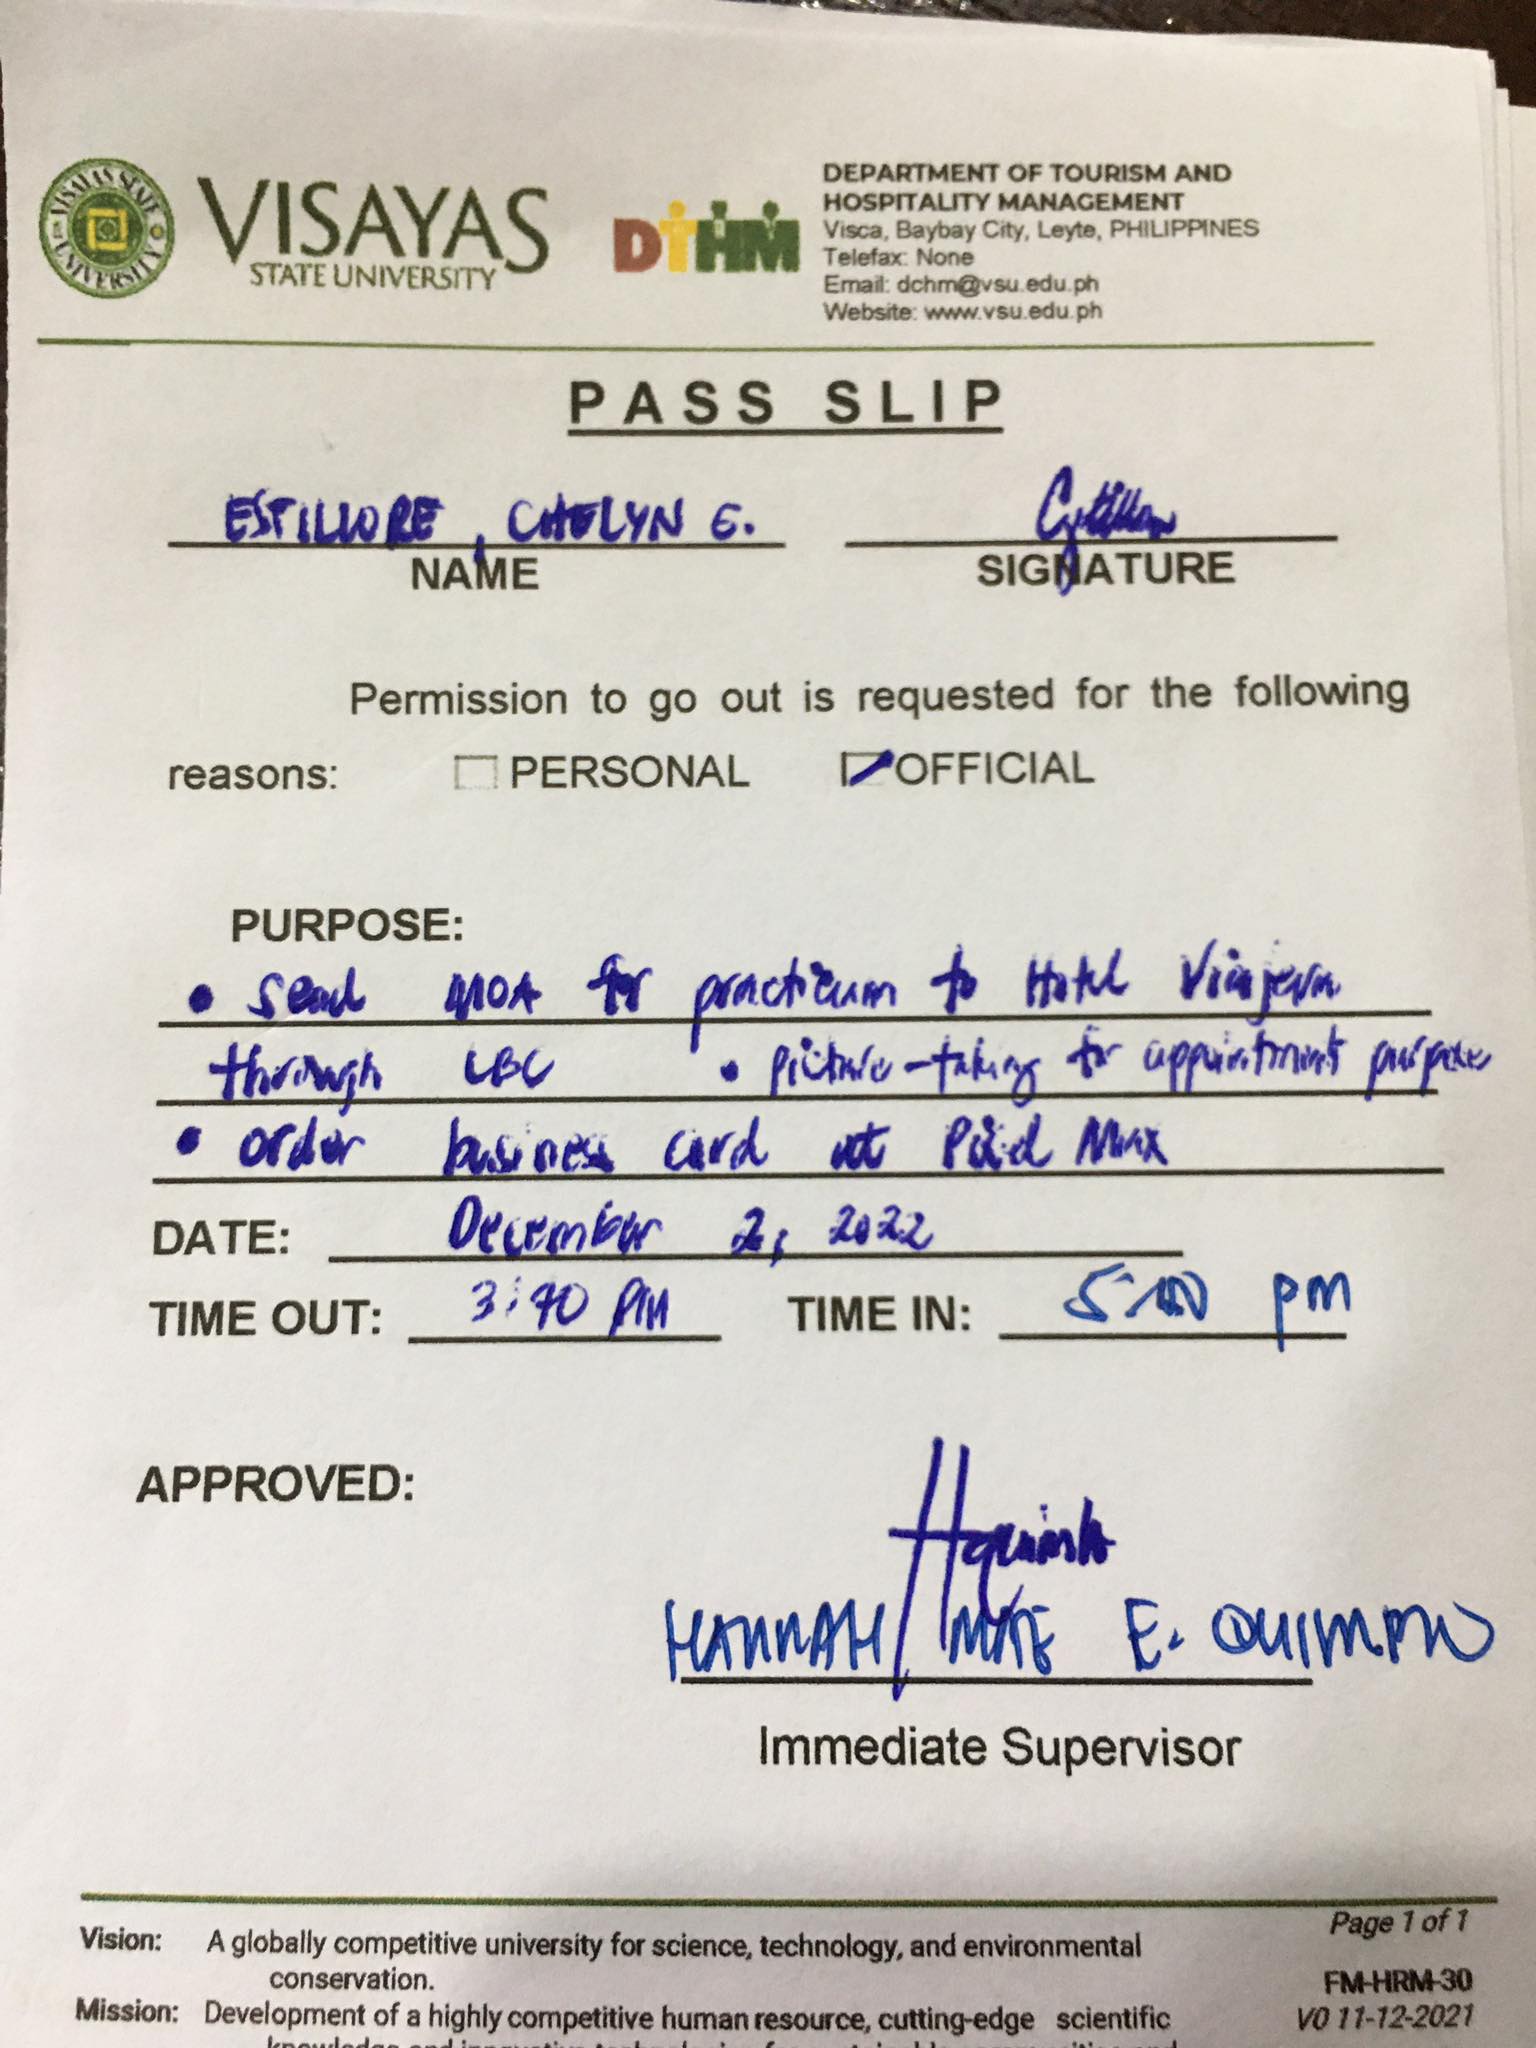 VISAYAS STATE UNIVERSITY
VISAYAS
STATE UNIVERSITY
DTHM
DEPARTMENT OF TOURISM AND
HOSPITALITY MANAGEMENT
Visca, Baybay City, Leyte, PHILIPPINES
Telefax: None
Email: dchm@vsu.edu.ph
Website: www.vsu.edu.ph
PASS SLIP
ESTILLORE, CHELYN E.
NAME SIGNATURE
Permission to go out is requested for the following
reasons: PERSONAL OFFICIAL
PURPOSE:
• Send MOA for practicum to Hotel
through LBC • picture-taking for appointment purposes
• order business card at Pixel Max
DATE: December 2, 2022
TIME OUT: 3:40 PM TIME IN: 5:00 pm
APPROVED:
HANNAH MAE E. QUIMPO
Immediate Supervisor
Page 1 of 1
Vision: A globally competitive university for science, technology, and environmental
conservation.
FM-HRM-30
Mission: Development of a highly competitive human resource, cutting-edge scientific
V0 11-12-2021